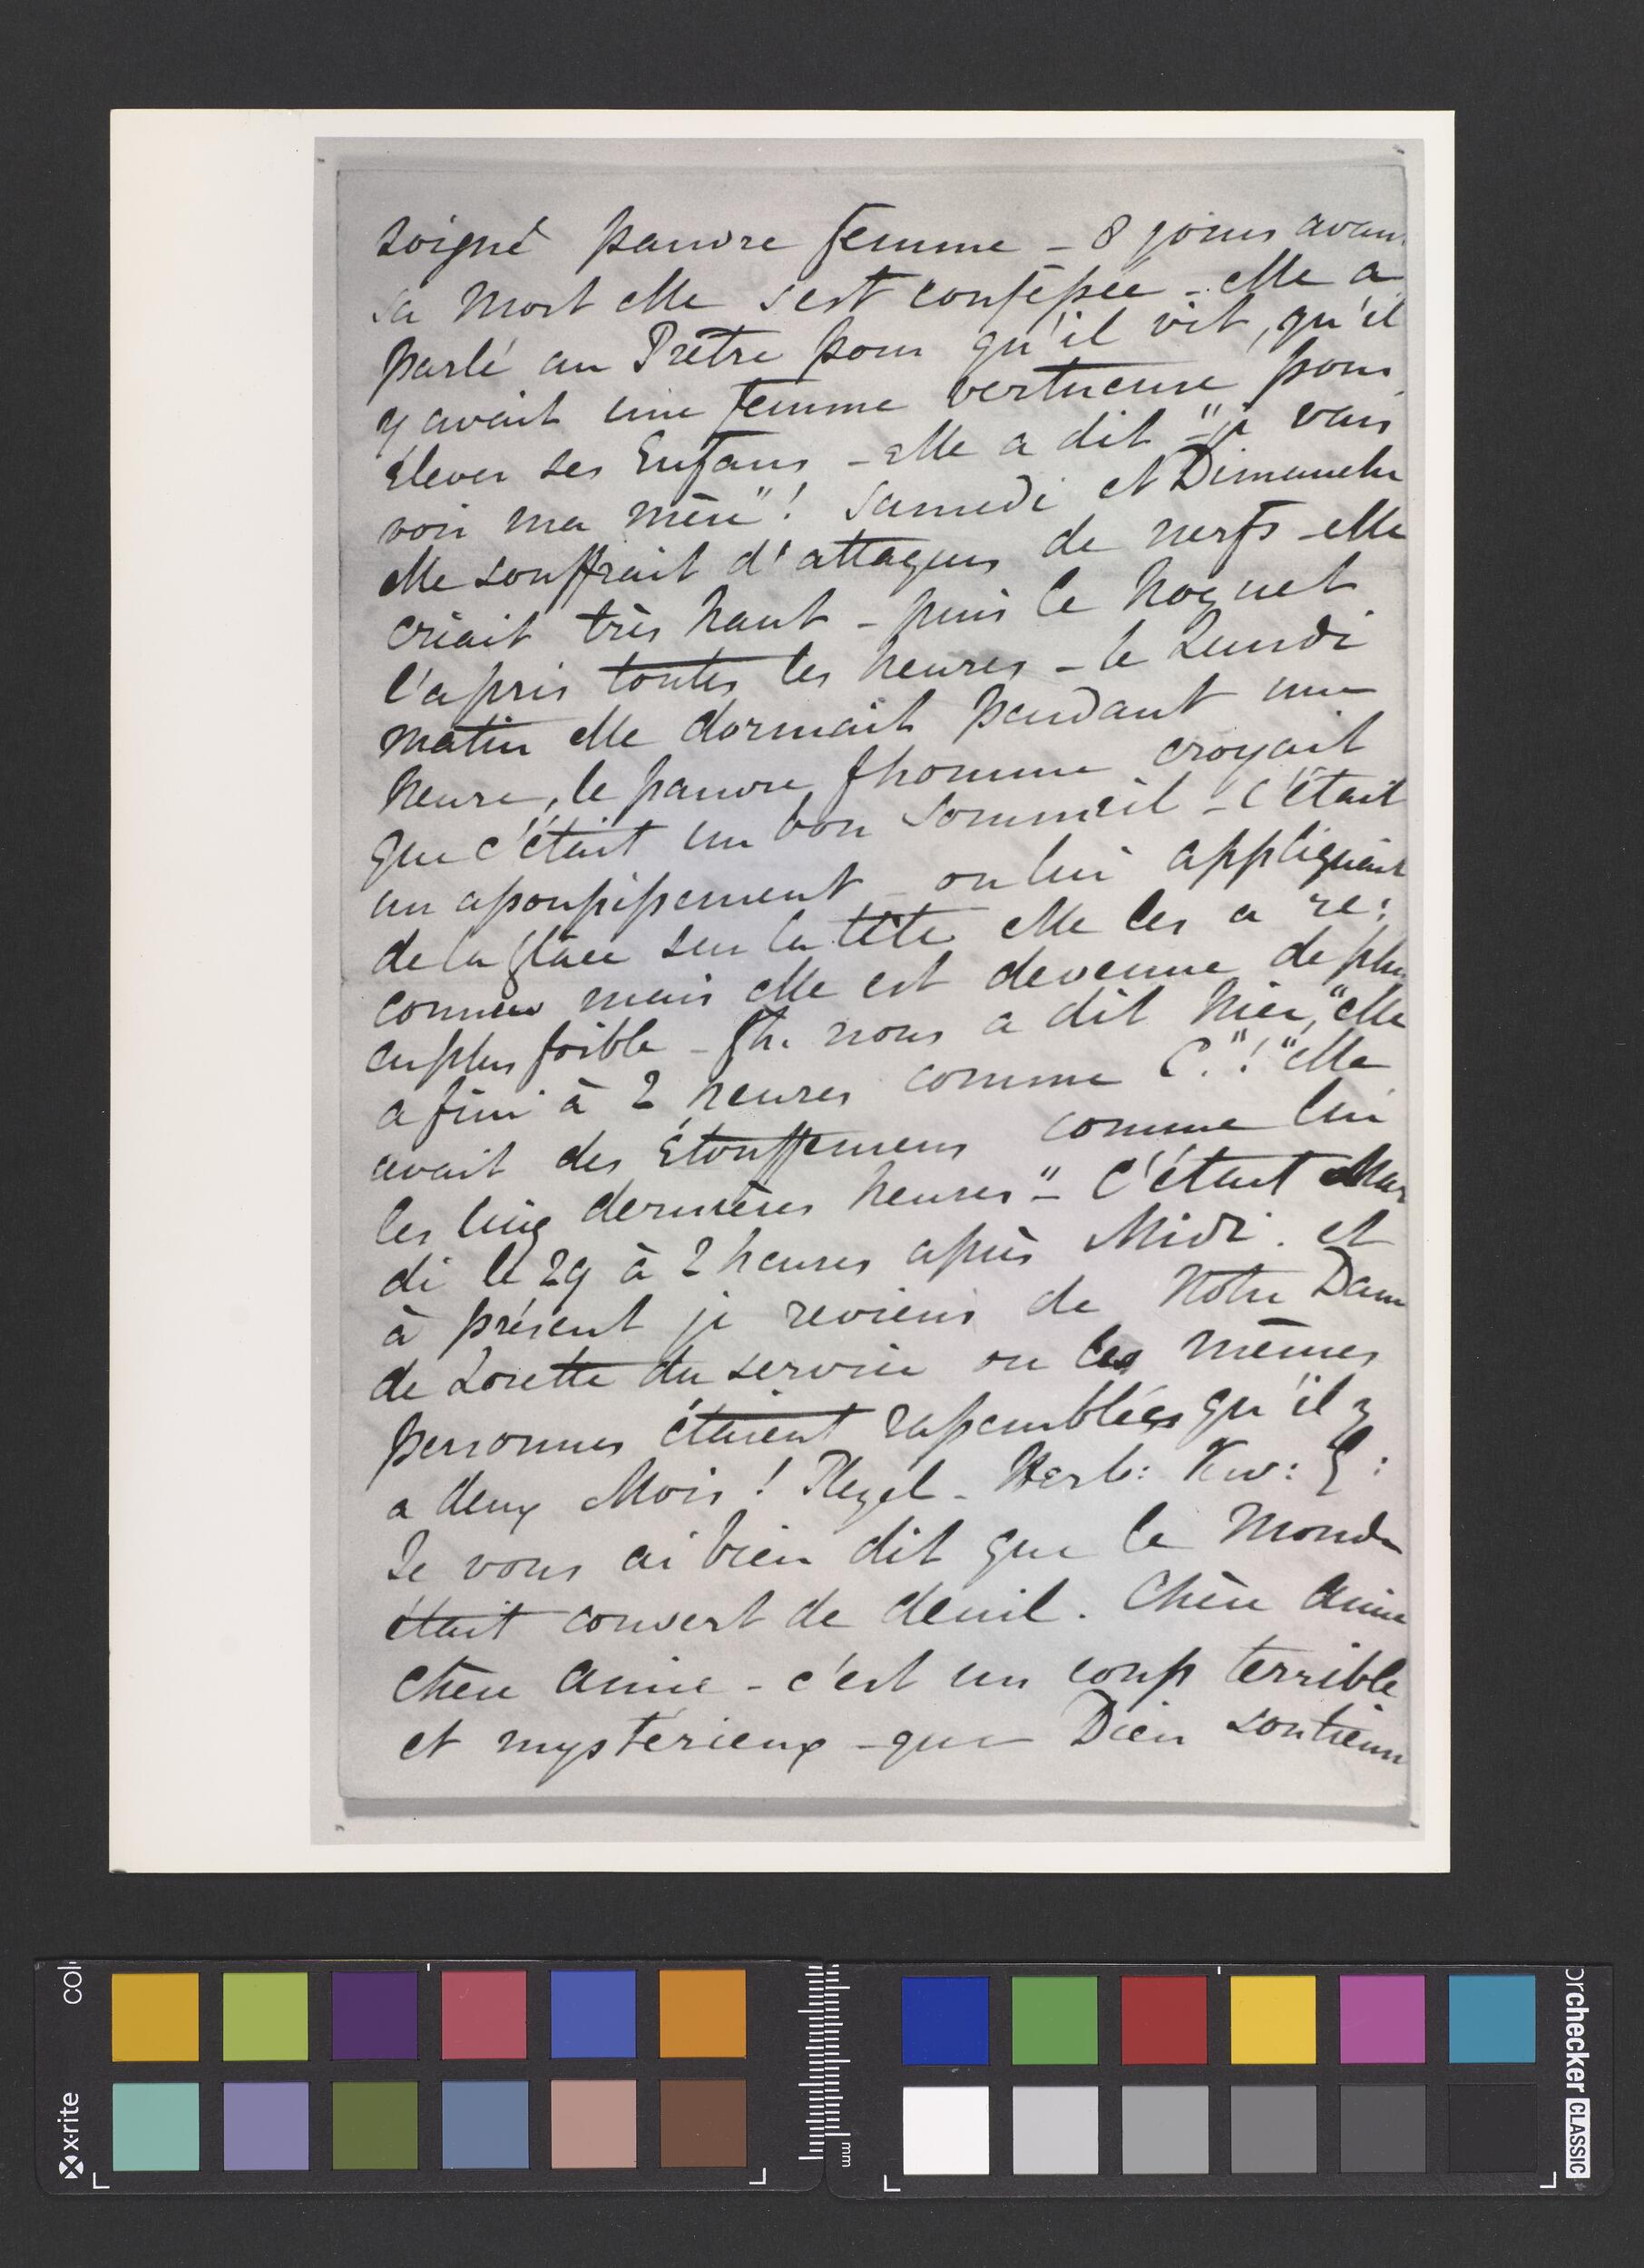 soigné pauvre femme - 8 jours avan
sa Mort elle s'est confessée - elle a
parlé au Prêtre pour qu'il vit, qu'il
y avait une femme vertueuse pour
élever ses Enfans - elle a dit "je vais
voir ma mère"! Samedi et Dimanche
elle souffrait d'attaques de nerfs - elle
criait très haut - puis le hoquet
l'a pris toutes les heures - le Lundi
matin elle dormait pendant une
heure, le pauvre homme croyait
que c'était un bon sommeil - c'était
un assoupissement - on lui appliquait
de la glace sur la tête elle les a re:
connus mais elle est devenue de plus
en plus foible - fh. nous a dit hier, "elle
a fini à 2 heures comme C."! "elle
avait des Etouffemens comme lui
les cinq dernières heures" - C'était Mar
di le 29 à 2 heures après Midi. et
à présent je reviens de Notre Dam
de Lorette du service ou les mêmes
personnes étaient rassemblées qu'il y
a deux Mois! Pleyel - Herb: Kw: G:
Je vous ai bien dit que le Monde
était couvert de deuil. Chère Amie
chère Amie - c'est un coup terrible
et mystérieux - que Dieu soutienn
x-rite
col
orchecker CLASSIC
mm